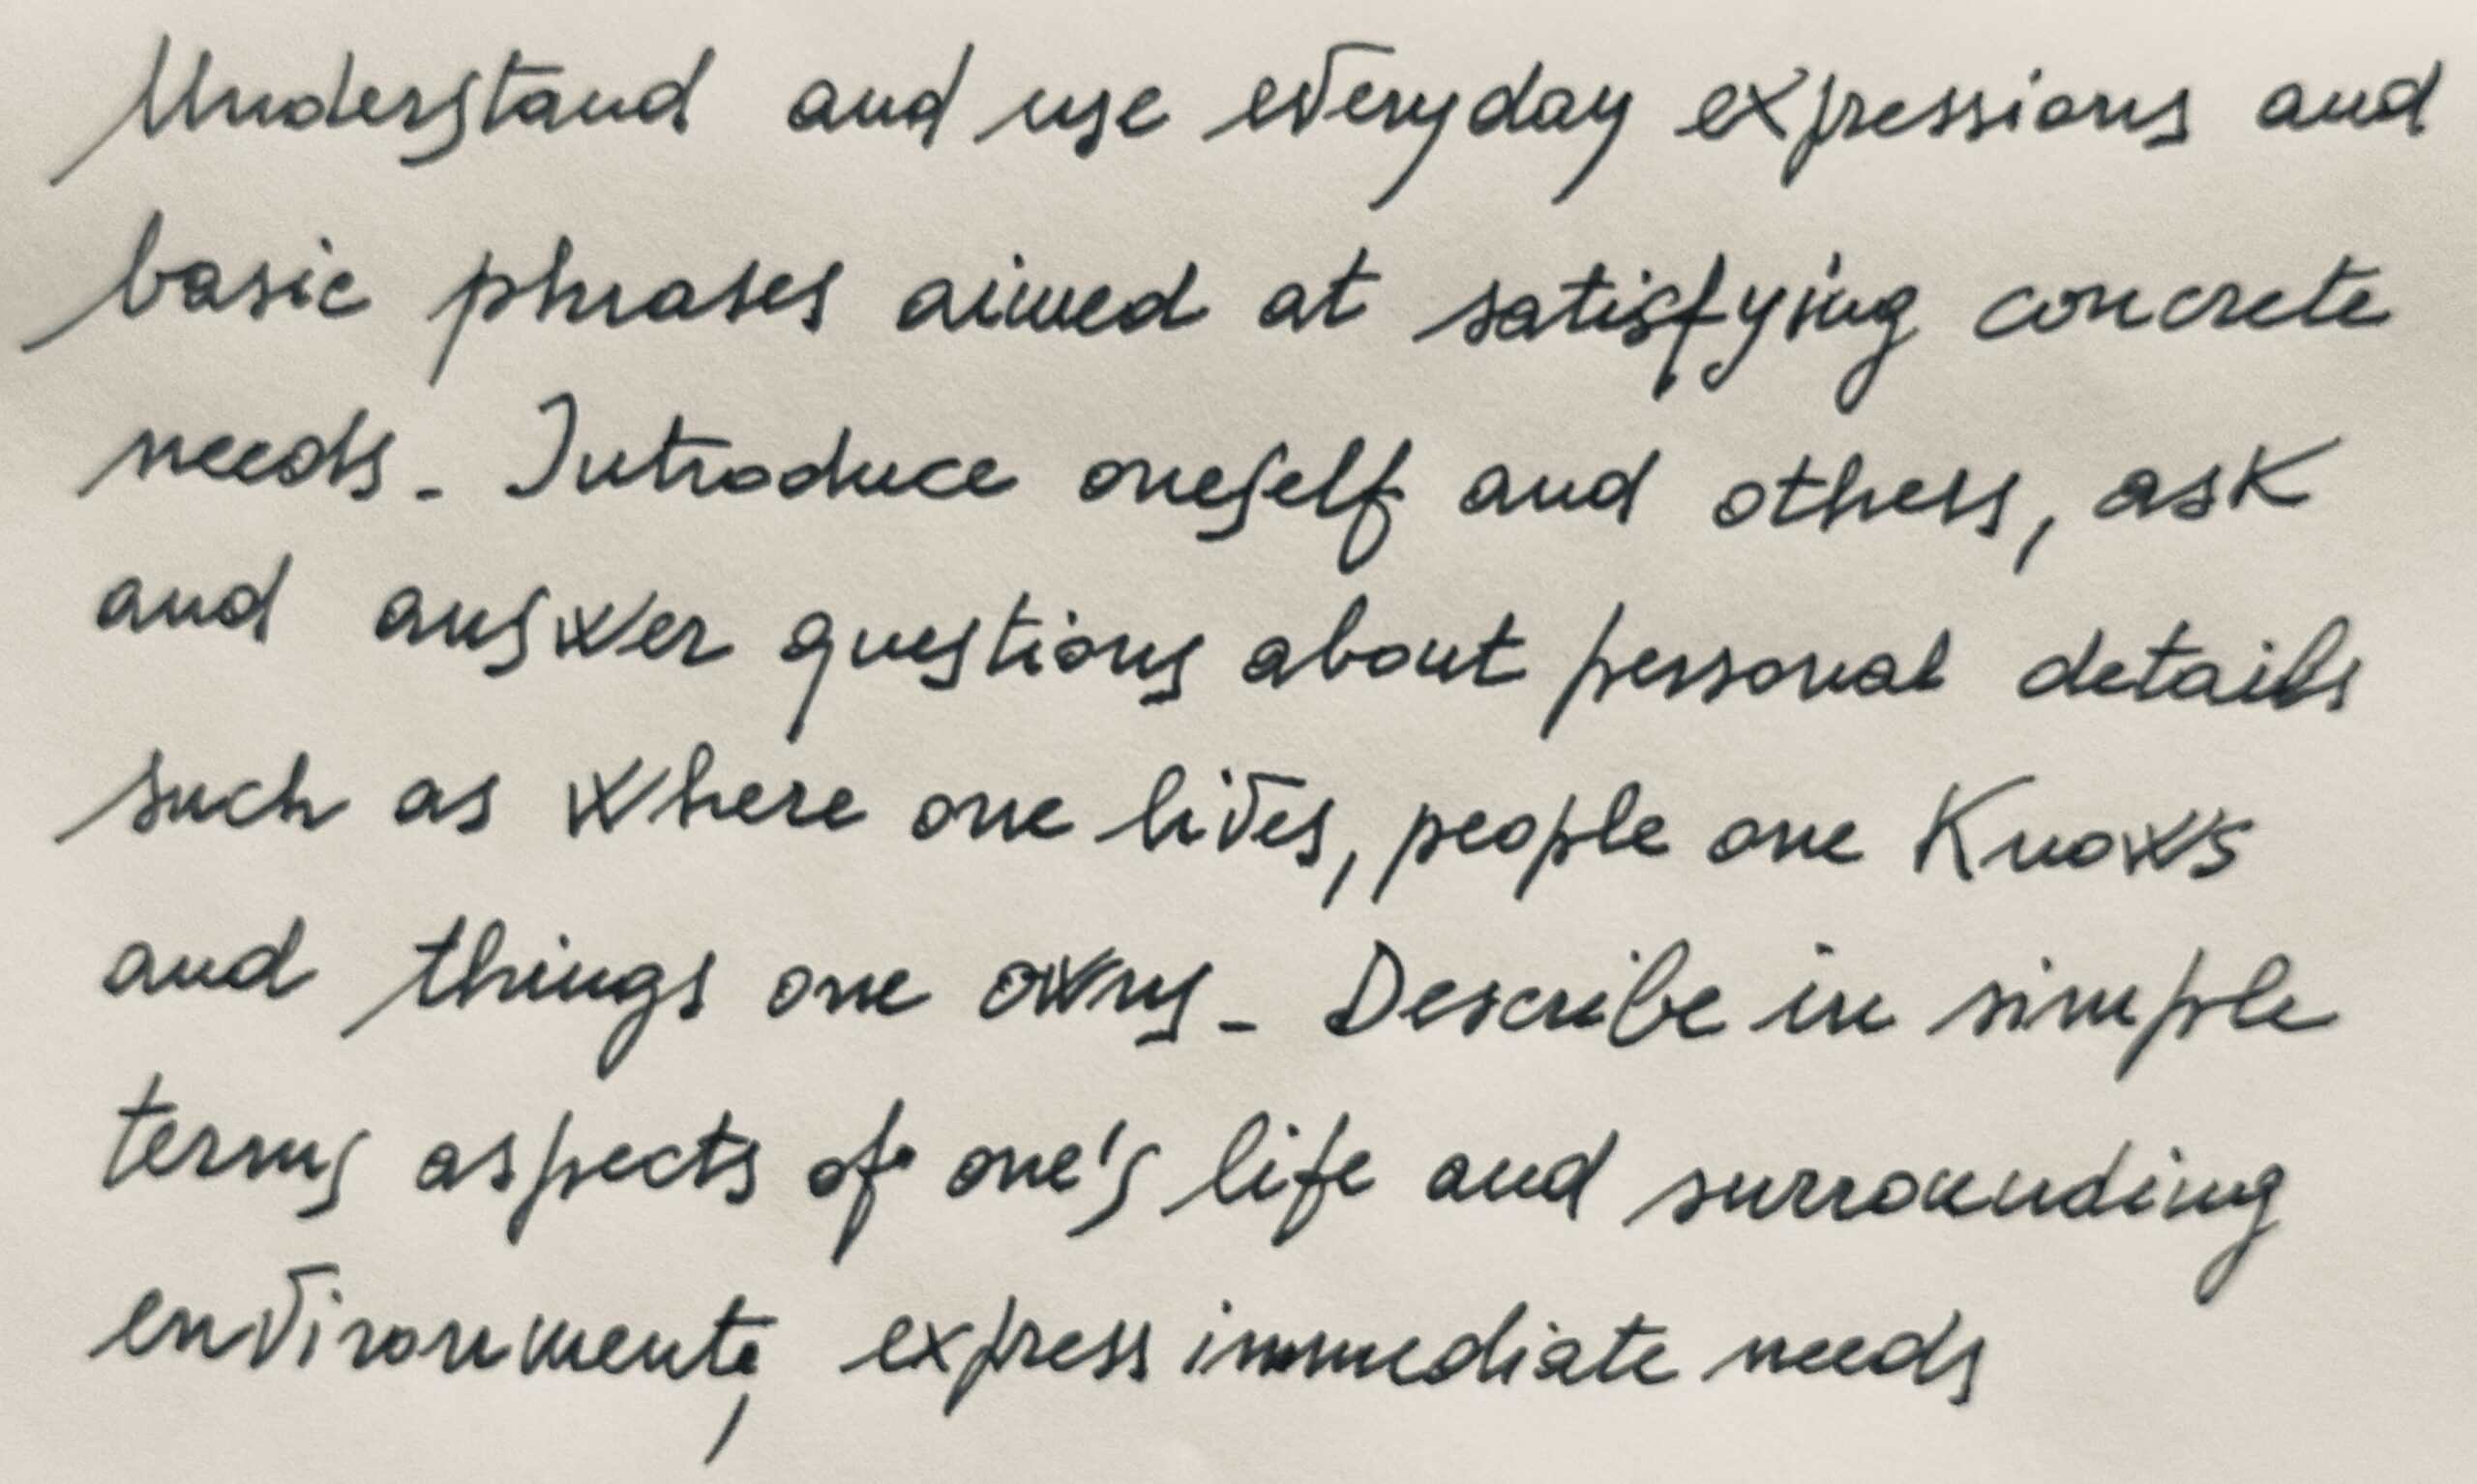 Understand and use everyday expressions and
basic phrases aimed at satisfying concrete
needs. Introduce oneself and others, ask
and answer questions about personal details
such as where one lives, people one knows
and things one owns. Describe in simple
terms aspects of one's life and surrounding
environment, express immediate needs